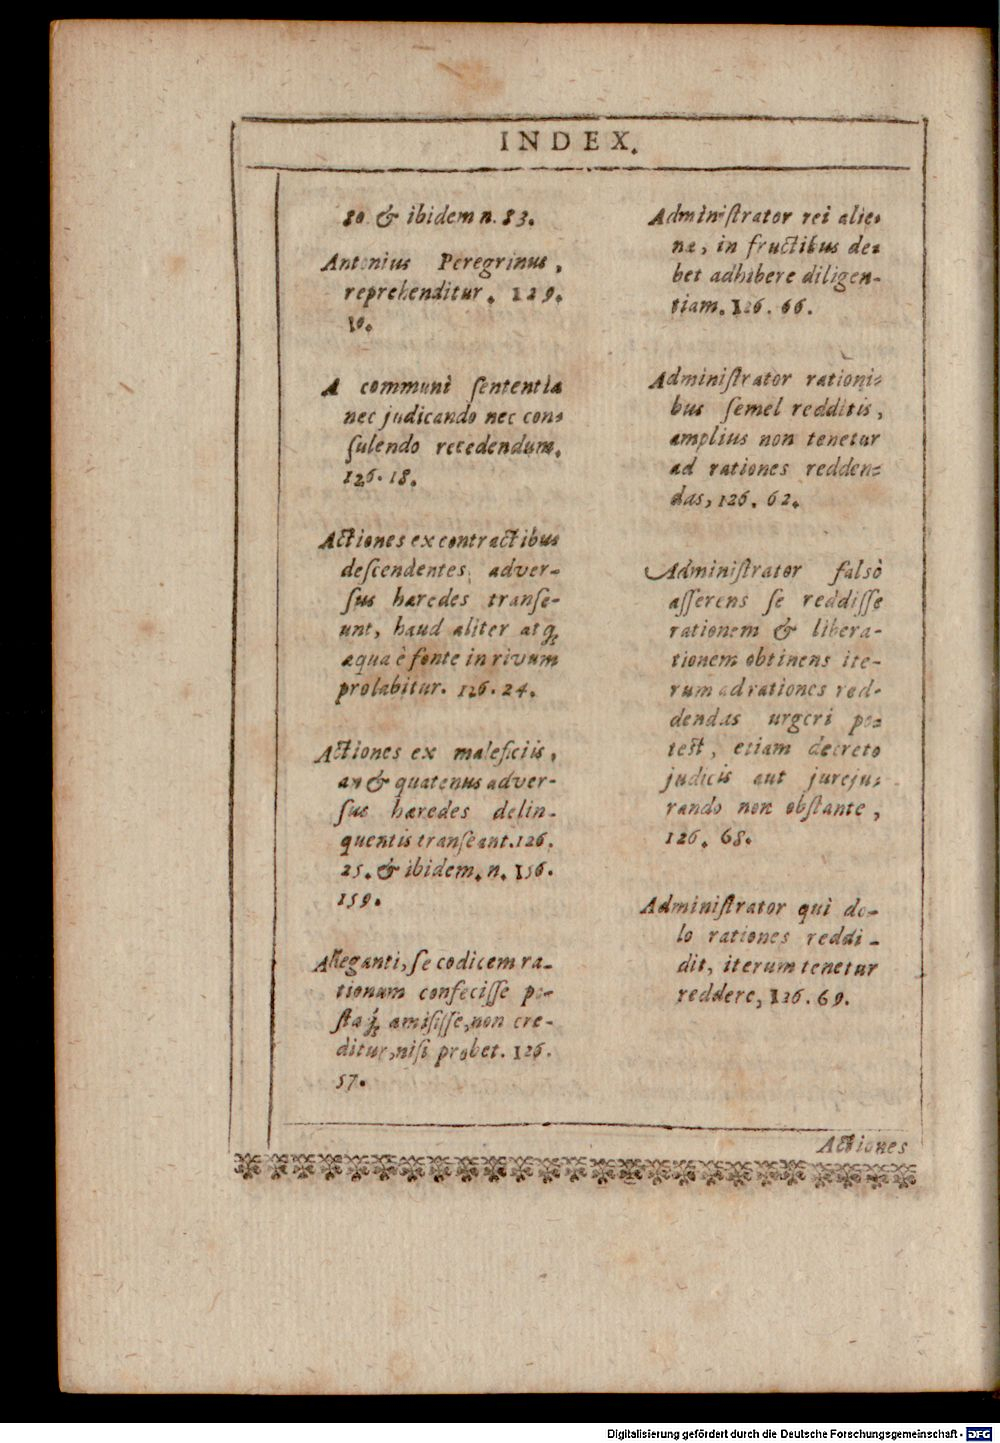 INDEX.
80. & ibidem n. 83.
Antonius Peregrinus,
reprehenditur. 129.
10.
A communi ſententia
nec judicando nec con-
ſulendo recedendum.
126. 18.
Actiones ex contractibus
deſcendentes, adver-
ſus hæredes tranſe-
unt, haud aliter atq;
aqua è fonte in rivum
prolabitur. 126. 24.
Actiones ex maleficiis,
an & quatenus adver-
ſus hæredes delin-
quentis tranſeant. 126.
25. & ibidem. n. 156.
159.
Alleganti, ſe codicem ra-
tionum confeciſſe po-
ſtaq́; amiſiſſe, non cre-
ditur, niſi probet. 126.
57.
Adminiſtrator rei alie-
næ, in fructibus de-
bet adhibere diligen-
tiam. 126. 66.
Adminiſtrator rationi-
bus ſemel redditis,
amplius non tenetur
ad rationes redden-
das, 126. 62.
Adminiſtrator falsò
aſſerens ſe reddiſſe
rationem & libera-
tionem obtinens ite-
rum ad rationes red-
dendas urgeri po-
test, etiam decreto
judicis aut jureju-
rando non obſtante,
126. 68.
Adminiſtrator qui do-
lo rationes reddi-
dit, iterum tenetur
reddere, 126. 69.
Actiones
Digitalisierung gefördert durch die Deutsche Forschungsgemeinschaft - DFG